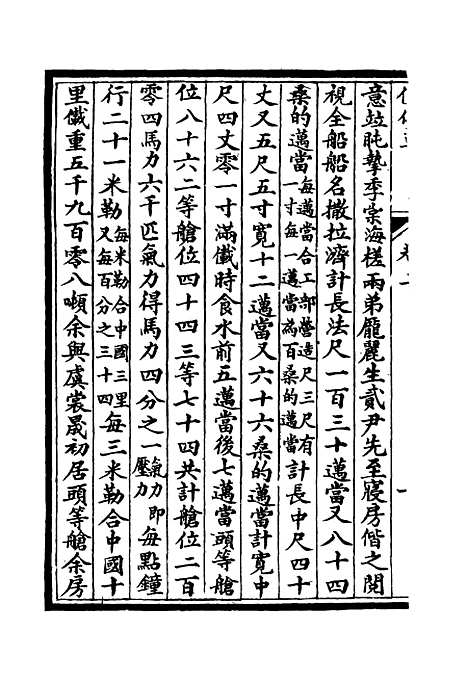 意竝肫摯季棠海槎兩弟龐麗生貳尹先至寢房偕之閱
視全船船名撒拉濟計長法尺一百三十邁當又八十四
桑的邁當每邁當合工部營造尺三尺有一寸每一邁當為百桑的邁當計長中尺四十
丈又五尺五寸寬十二邁當又六十六桑的邁當計寬中
尺四丈零一寸滿儎時食水前五邁當後七邁當頭等艙
位八十六二等艙位四十四三等七十四共計艙位二百
零四馬力六千匹氣力得馬力四分之一氣力壓力即每點鐘
行二十一米勒每米勒合中國三里又每百分之三十四每三米勒合中國十
里儎重五千九百零八噸余與虞裳晟初居頭等艙余房